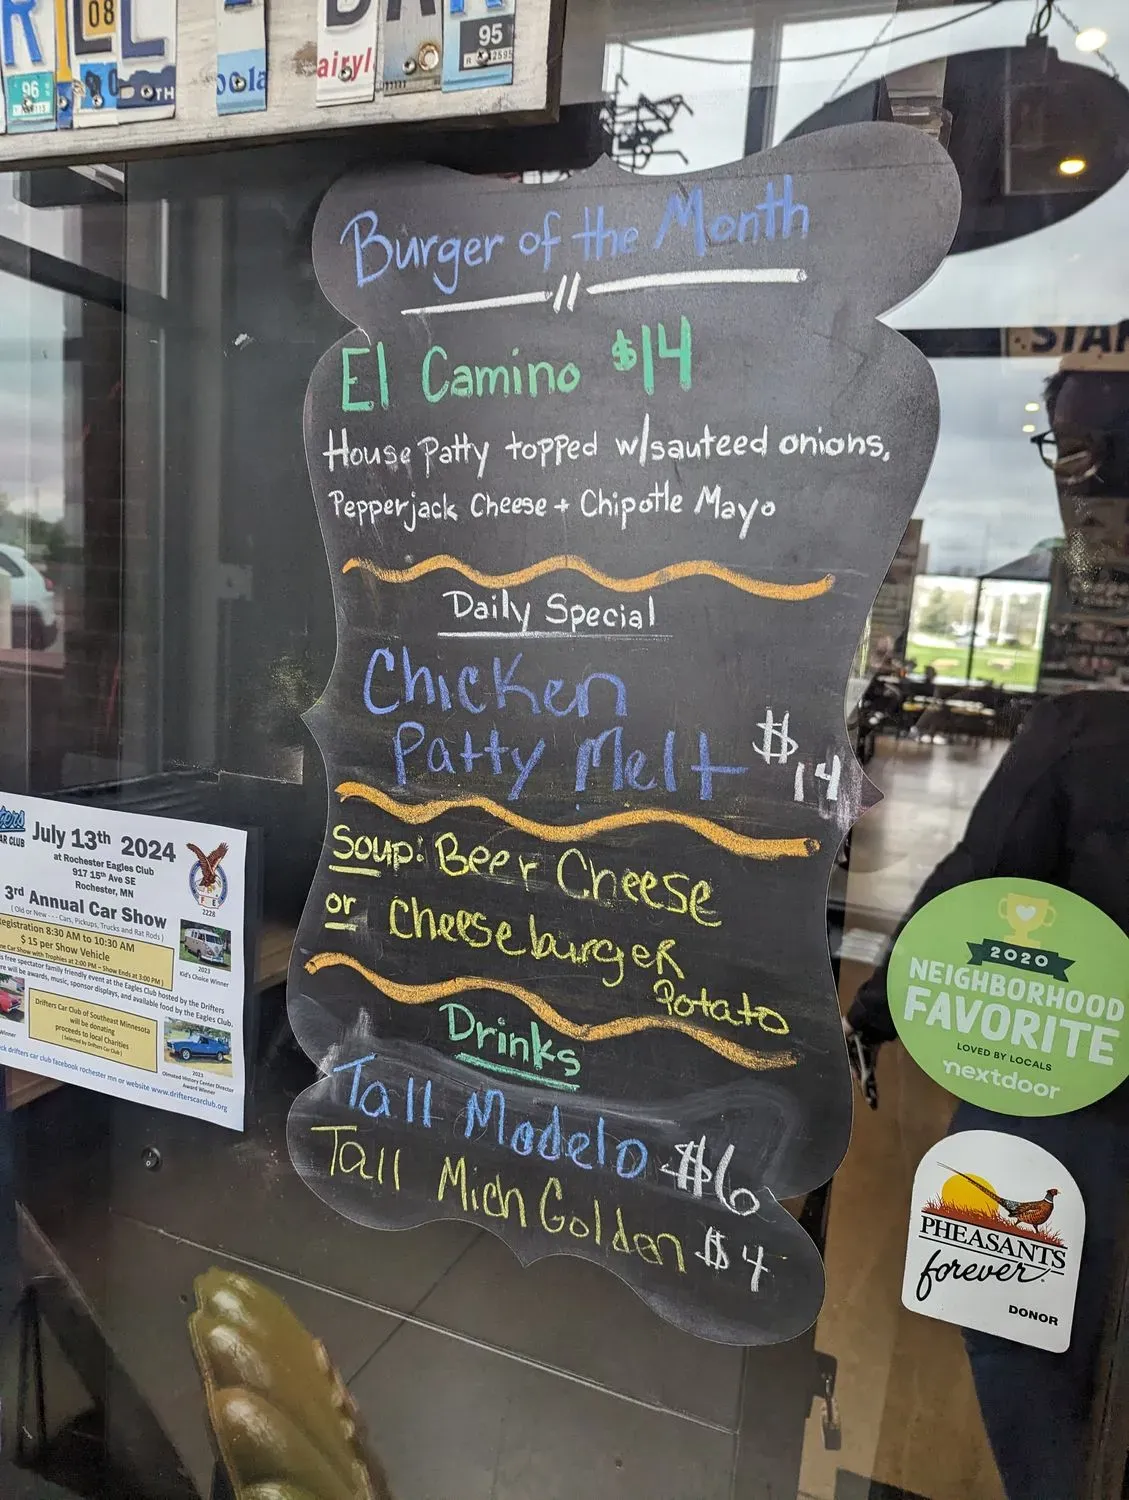 08
96
TH
oola
airyl
95
2595
Burger of the Month
El Camino $14
House Patty topped w/sauteed onions,
Pepperjack Cheese + Chipotle Mayo
Daily Special
Chicken
Patty Melt $14
Soup: Beer Cheese
or Cheeseburger
Potato
Drinks
Tall Modelo $6
Tall Mich Golden $4
AR CLUB
July 13th 2024
at Rochester Eagles Club
917 15th Ave SE
Rochester, MN
2228
3rd Annual Car Show
(Old or New - - - Cars, Pickups, Trucks and Rat Rods)
Registration 8:30 AM to 10:30 AM
$ 15 per Show Vehicle
Car Show with Trophies at 2:00 PM - Show Ends at 3:00 PM)
free spectator family friendly event at the Eagles Club hosted by the Drifters
will be awards, music, sponsor displays, and available food by the Eagles Club.
2023
Kid's Choice Winner
Drifters Car Club of Southeast Minnesota
will be donating
proceeds to local Charities
(Selected by Drifters Car Club)
Winner
2023
Olmsted History Center Director
Award Winner
drifters car club facebook rochester mn or website www.drifterscarclub.org
STAR
2020
NEIGHBORHOOD
FAVORITE
LOVED BY LOCALS
nextdoor
PHEASANTS
forever
DONOR